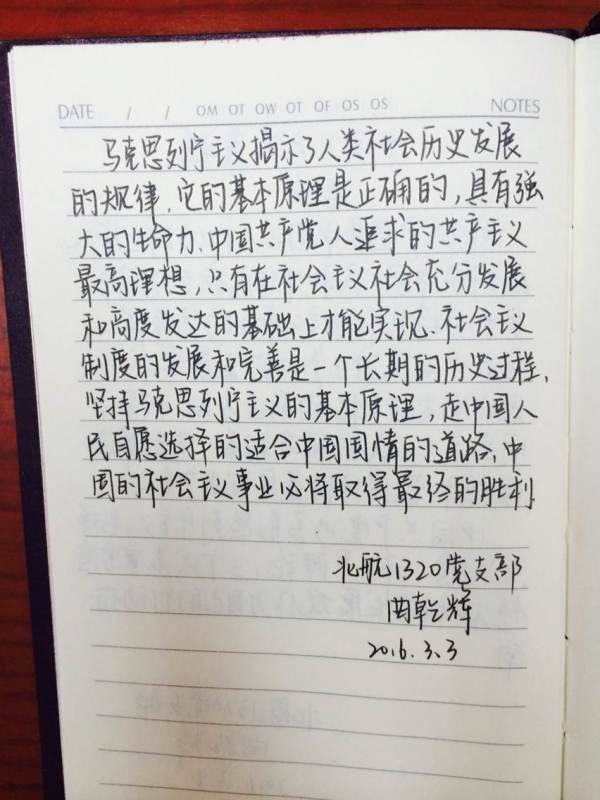 DATE / / OM OT OW OT OF OS OS NOTES
马克思列宁主义揭示了人类社会历史发展
的规律、它的基本原理是正确的，具有强
大的生命力、中国共产党人追求的共产主义
最高理想，只有在社会主义社会充分发展
和高度发达的基础上才能实现、社会主义
制度的发展和完善是一个长期的历史过程、
坚持马克思列宁主义的基本原理，走中国人
民自愿选择的适合中国国情的道路，中
国的社会主义事业必将取得最终的胜利
北航1320党支部
曲乾辉
2016.3.3